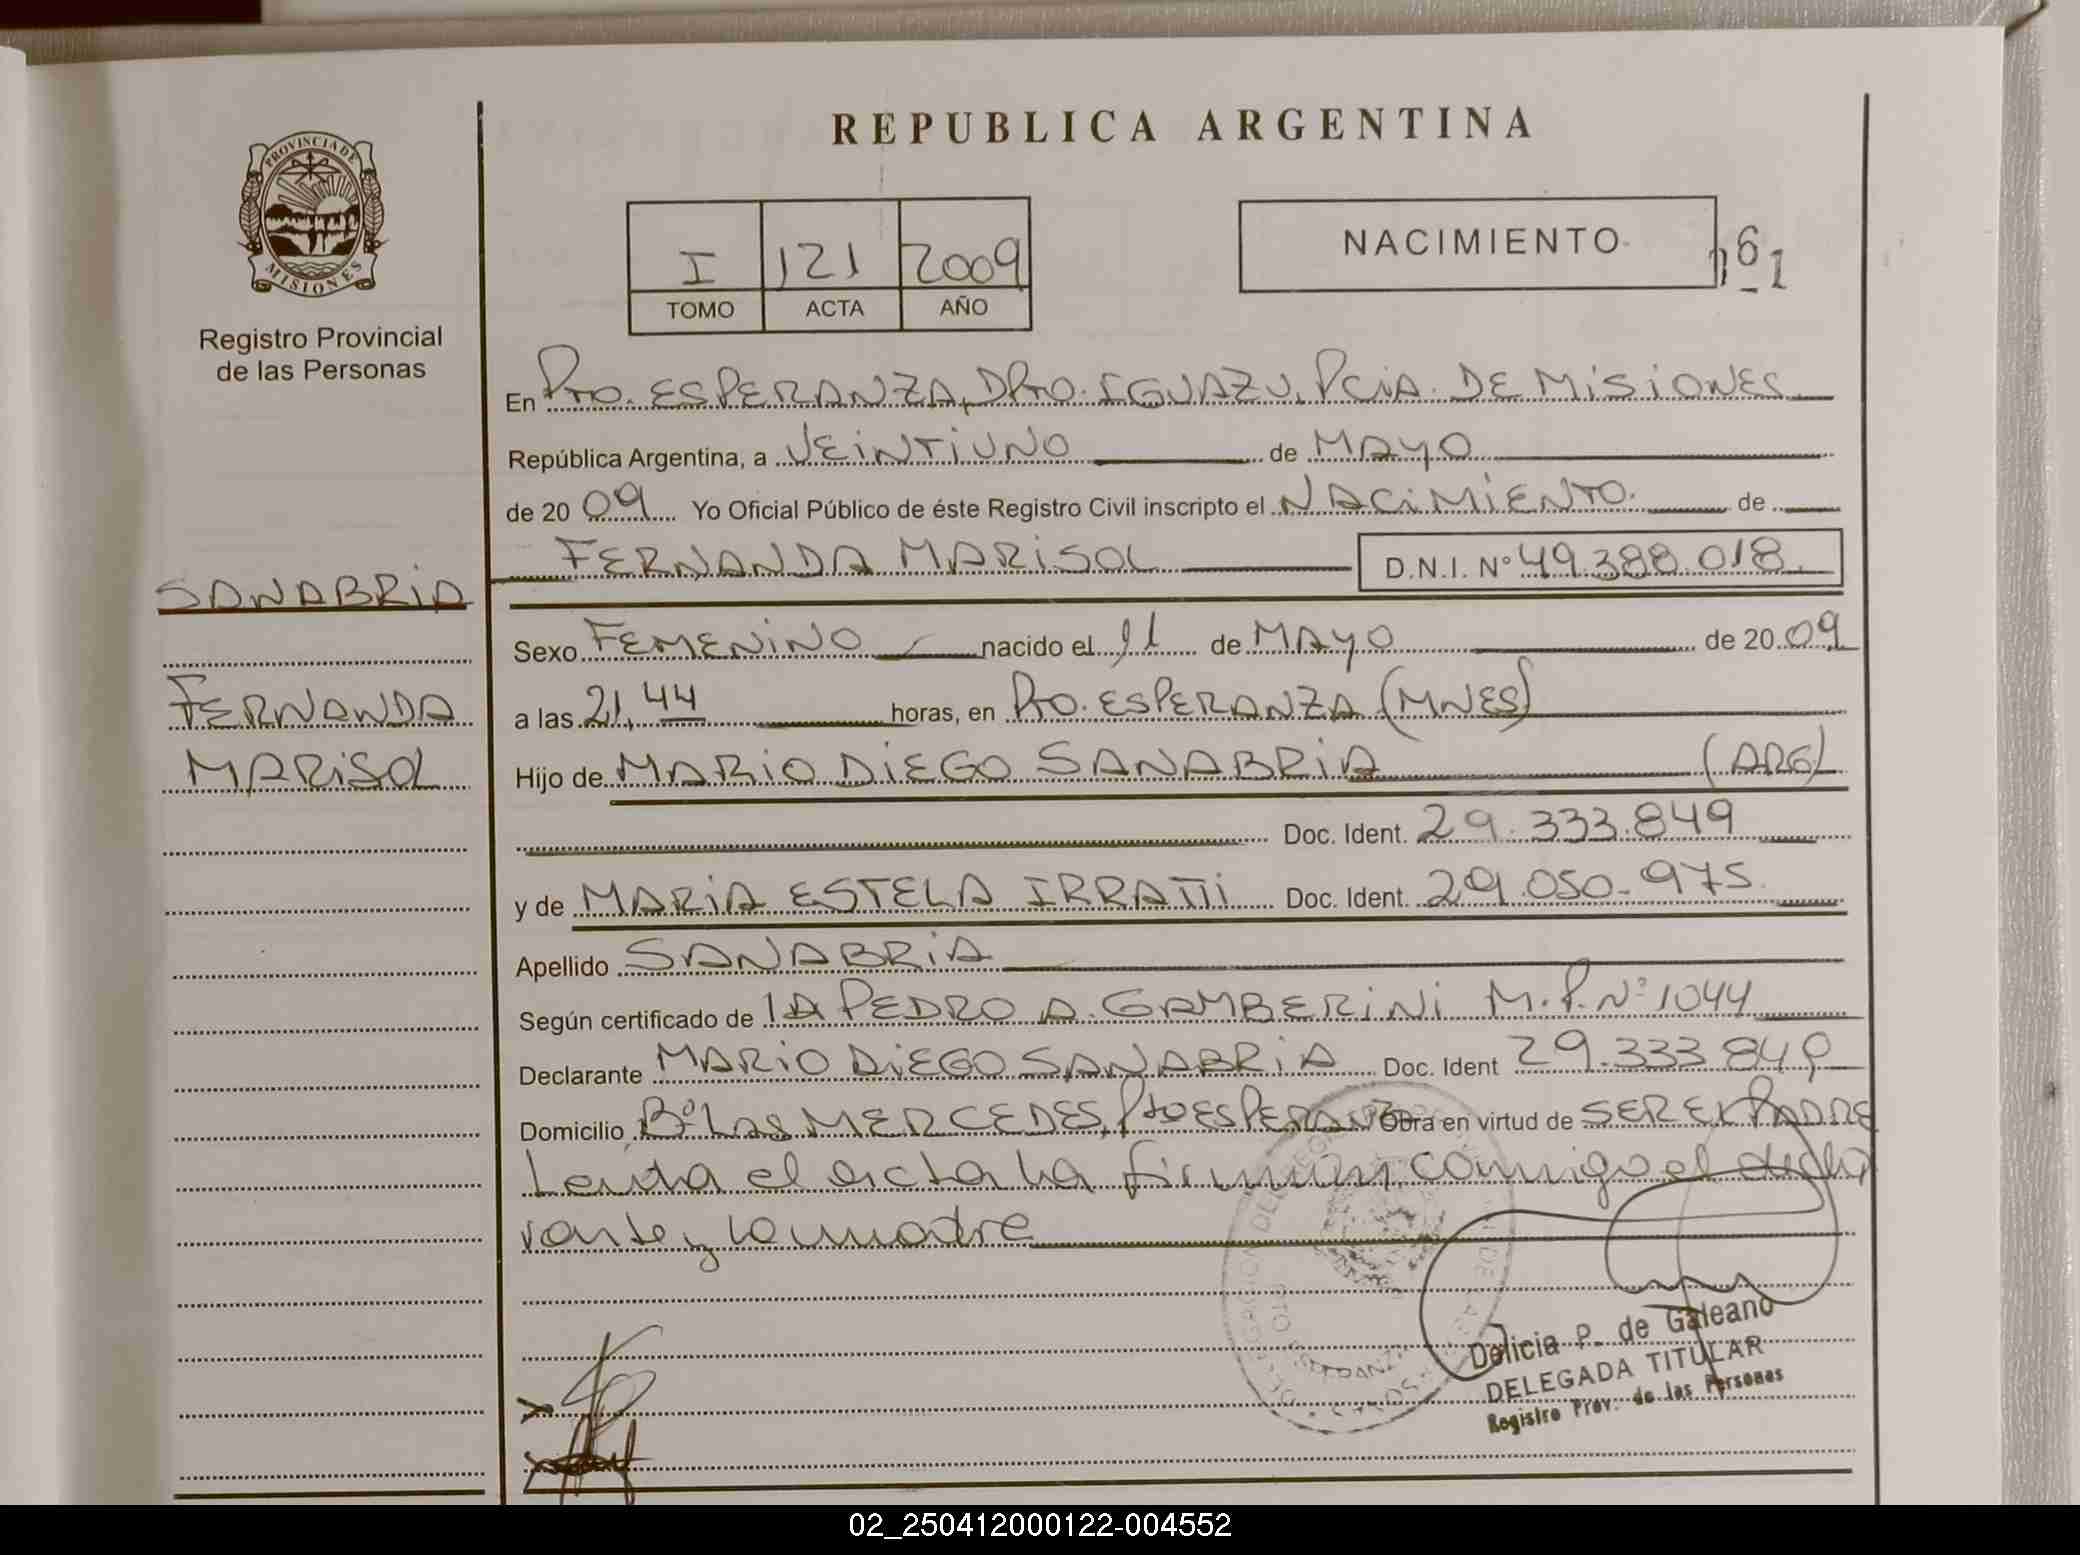 REPUBLICA ARGENTINA
PROVINCIA DE
MISIONES
Registro Provincial
de las Personas
I 121 2009
TOMO ACTA AÑO
NACIMIENTO
61
En Pto. ESPERANZA, DPTO. IGUAZU, PCIA. DE MISIONES
República Argentina, a VEINTIUNO de MAYO
de 20 09 Yo Oficial Público de éste Registro Civil inscripto el NACIMIENTO. de
FERNANDA MARISOL D.N.I. Nº 49.388.018.
SANABRIA
Sexo FEMENINO nacido el 11 de MAYO de 20 09
FERNANDA
a las 21,44 horas, en Pto. ESPERANZA (MNES)
MARISOL
Hijo de MARIO DIEGO SANABRIA (ARG)
Doc. Ident. 29.333.849
y de MARIA ESTELA IRRATTI Doc. Ident. 29.050.975.
Apellido SANABRIA
Según certificado de PEDRO A. GAMBERINI M.P. Nº 1044
Declarante MARIO DIEGO SANABRIA Doc. Ident 29.333.849
Domicilio Bº LAS MERCEDES, Pto ESPERANZA Obra en virtud de SER EL PADRE
Leida el acta la firman, conmigo el decla
rante y la madre
Delicia P. de Galeano
DELEGADA TITULAR
Registro Prov. de las Personas
02_250412000122-004552